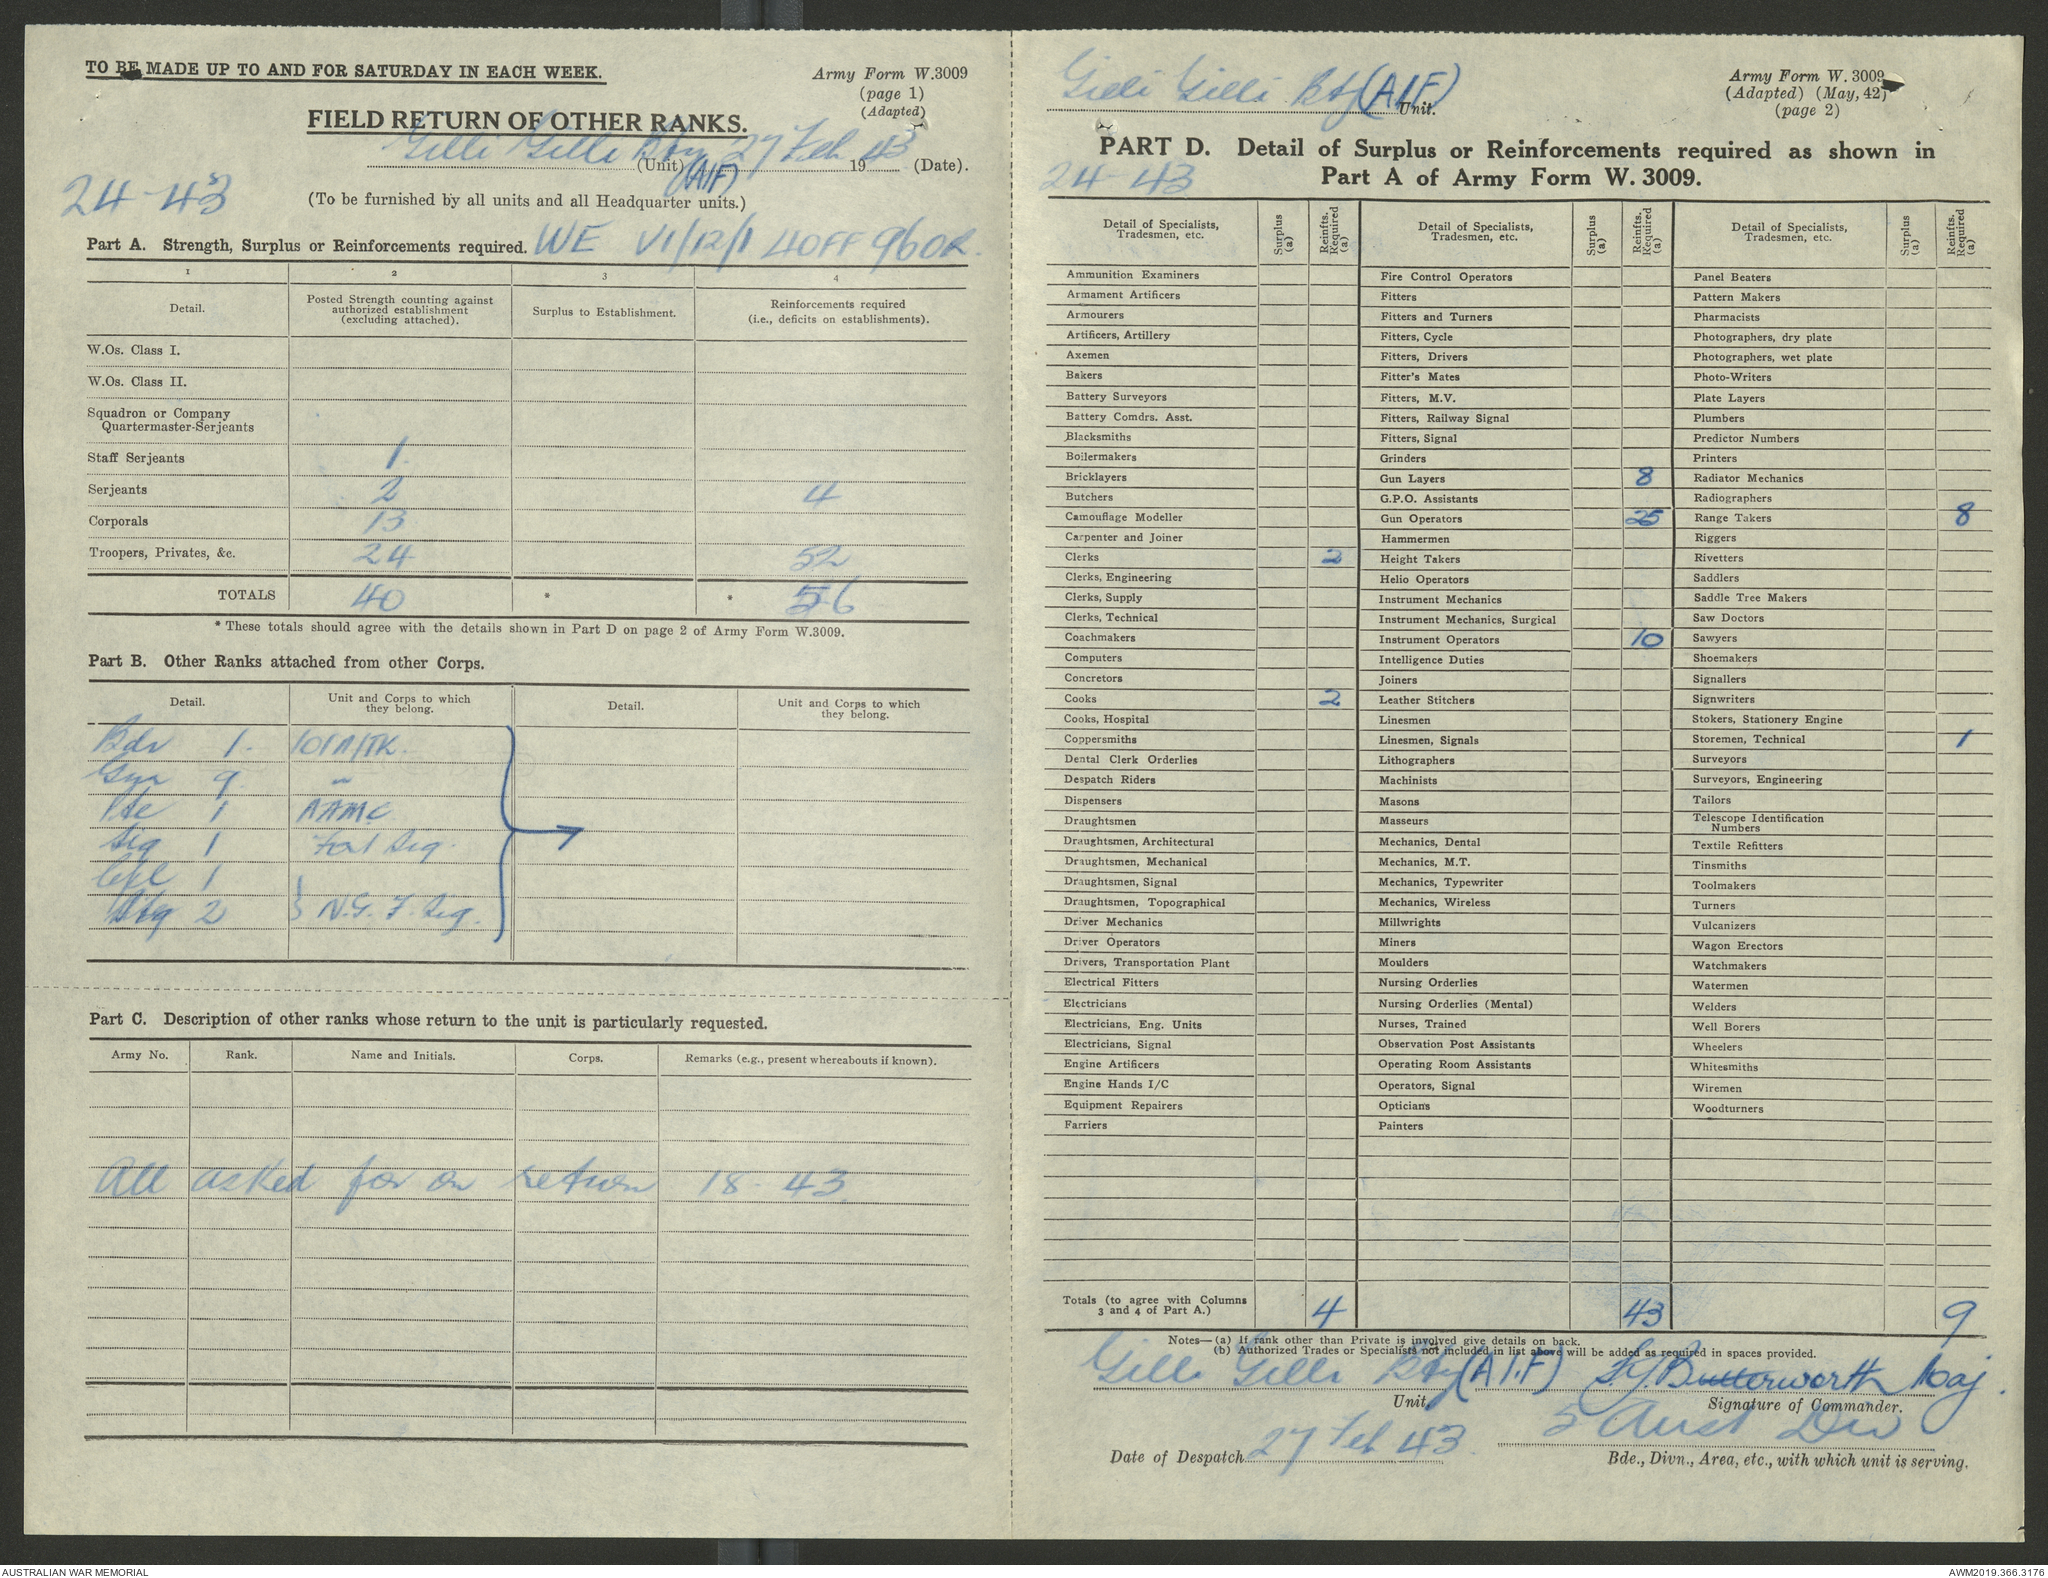 TO BE MADE UP TO AND FOR SATURDAY IN EACH WEEK.
Army Form W.3009
(page 1)
(Adapted)
FIELD RETURN OF OTHER RANKS.
Gilli Gilli Bty (AIF) (Unit) 27 Feb 1943 (Date).
24-43
(To be furnished by all units and all Headquarter units.)
Part A. Strength, Surplus or Reinforcements required. WE VI/12/1 4OFF 96OR.
1 2 3 4
Detail. Posted Strength counting against authorized establishment (excluding attached). Surplus to Establishment. Reinforcements required (i.e., deficits on establishments).
W.Os. Class I.
W.Os. Class II.
Squadron or Company
Quartermaster-Serjeants
Staff Serjeants 1
Serjeants 2 4
Corporals 13
Troopers, Privates, &c. 24 52
TOTALS 40 * * 56
* These totals should agree with the details shown in Part D on page 2 of Army Form W.3009.
Part B. Other Ranks attached from other Corps.
Detail. Unit and Corps to which they belong. Detail. Unit and Corps to which they belong.
Bdr 1. 101 A/TK.
Gnr 9 "
Pte 1 AAMC
Sig 1 Sig.
Cpl 1
Sig 2 } N.G.F. Sig.
Part C. Description of other ranks whose return to the unit is particularly requested.
Army No. Rank. Name and Initials. Corps. Remarks (e.g., present whereabouts if known).
All asked for on return 18-43
Gilli Gilli Bty (AIF) Unit.
Army Form W. 3009
(Adapted) (May, 42)
(page 2)
PART D. Detail of Surplus or Reinforcements required as shown in
Part A of Army Form W. 3009.
24-43
Detail of Specialists, Tradesmen, etc. Surplus (a) Reinfts. Required (a) Detail of Specialists, Tradesmen, etc. Surplus (a) Reinfts. Required (a) Detail of Specialists, Tradesmen, etc. Surplus (a) Reinfts. Required (a)
Ammunition Examiners Fire Control Operators Panel Beaters
Armament Artificers Fitters Pattern Makers
Armourers Fitters and Turners Pharmacists
Artificers, Artillery Fitters, Cycle Photographers, dry plate
Axemen Fitters, Drivers Photographers, wet plate
Bakers Fitter's Mates Photo-Writers
Battery Surveyors Fitters, M.V. Plate Layers
Battery Comdrs. Asst. Fitters, Railway Signal Plumbers
Blacksmiths Fitters, Signal Predictor Numbers
Boilermakers Grinders Printers
Bricklayers Gun Layers 8 Radiator Mechanics
Butchers G.P.O. Assistants Radiographers
Camouflage Modeller Gun Operators 25 Range Takers 8
Carpenter and Joiner Hammermen Riggers
Clerks 2 Height Takers Rivetters
Clerks, Engineering Helio Operators Saddlers
Clerks, Supply Instrument Mechanics Saddle Tree Makers
Clerks, Technical Instrument Mechanics, Surgical Saw Doctors
Coachmakers Instrument Operators 10 Sawyers
Computers Intelligence Duties Shoemakers
Concretors Joiners Signallers
Cooks 2 Leather Stitchers Signwriters
Cooks, Hospital Linesmen Stokers, Stationery Engine
Coppersmiths Linesmen, Signals Storemen, Technical 1
Dental Clerk Orderlies Lithographers Surveyors
Despatch Riders Machinists Surveyors, Engineering
Dispensers Masons Tailors
Draughtsmen Masseurs Telescope Identification Numbers
Draughtsmen, Architectural Mechanics, Dental Textile Refitters
Draughtsmen, Mechanical Mechanics, M.T. Tinsmiths
Draughtsmen, Signal Mechanics, Typewriter Toolmakers
Draughtsmen, Topographical Mechanics, Wireless Turners
Driver Mechanics Millwrights Vulcanizers
Driver Operators Miners Wagon Erectors
Drivers, Transportation Plant Moulders Watchmakers
Electrical Fitters Nursing Orderlies Watermen
Electricians Nursing Orderlies (Mental) Welders
Electricians, Eng. Units Nurses, Trained Well Borers
Electricians, Signal Observation Post Assistants Wheelers
Engine Artificers Operating Room Assistants Whitesmiths
Engine Hands I/C Operators, Signal Wiremen
Equipment Repairers Opticians Woodturners
Farriers Painters
Totals (to agree with Columns 3 and 4 of Part A.) 4 43 9
Notes—(a) If rank other than Private is involved give details on back.
(b) Authorized Trades or Specialists not included in list above will be added as required in spaces provided.
Gilli Gilli Bty (A.I.F) Butterworth Maj.
Unit. Signature of Commander.
Date of Despatch 27 Feb 43. 5 Aust Div
Bde., Divn., Area, etc., with which unit is serving.
AUSTRALIAN WAR MEMORIAL
AWM2019.366.3176